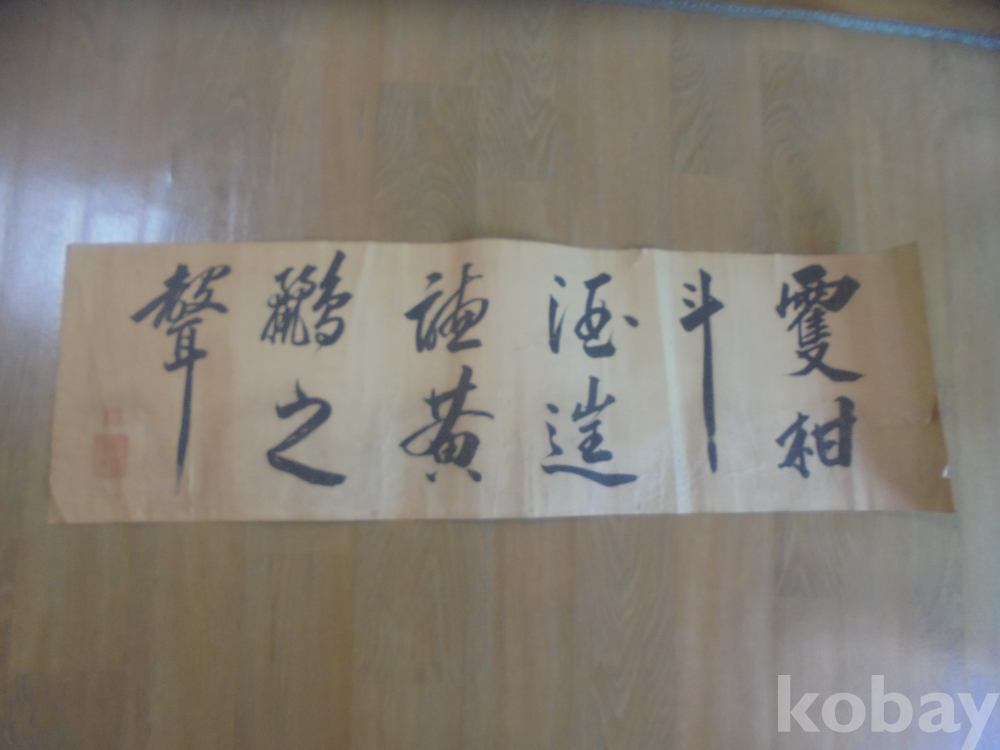 䨇柑
斗
酒往
聽黃
鸝之
聲
kobay